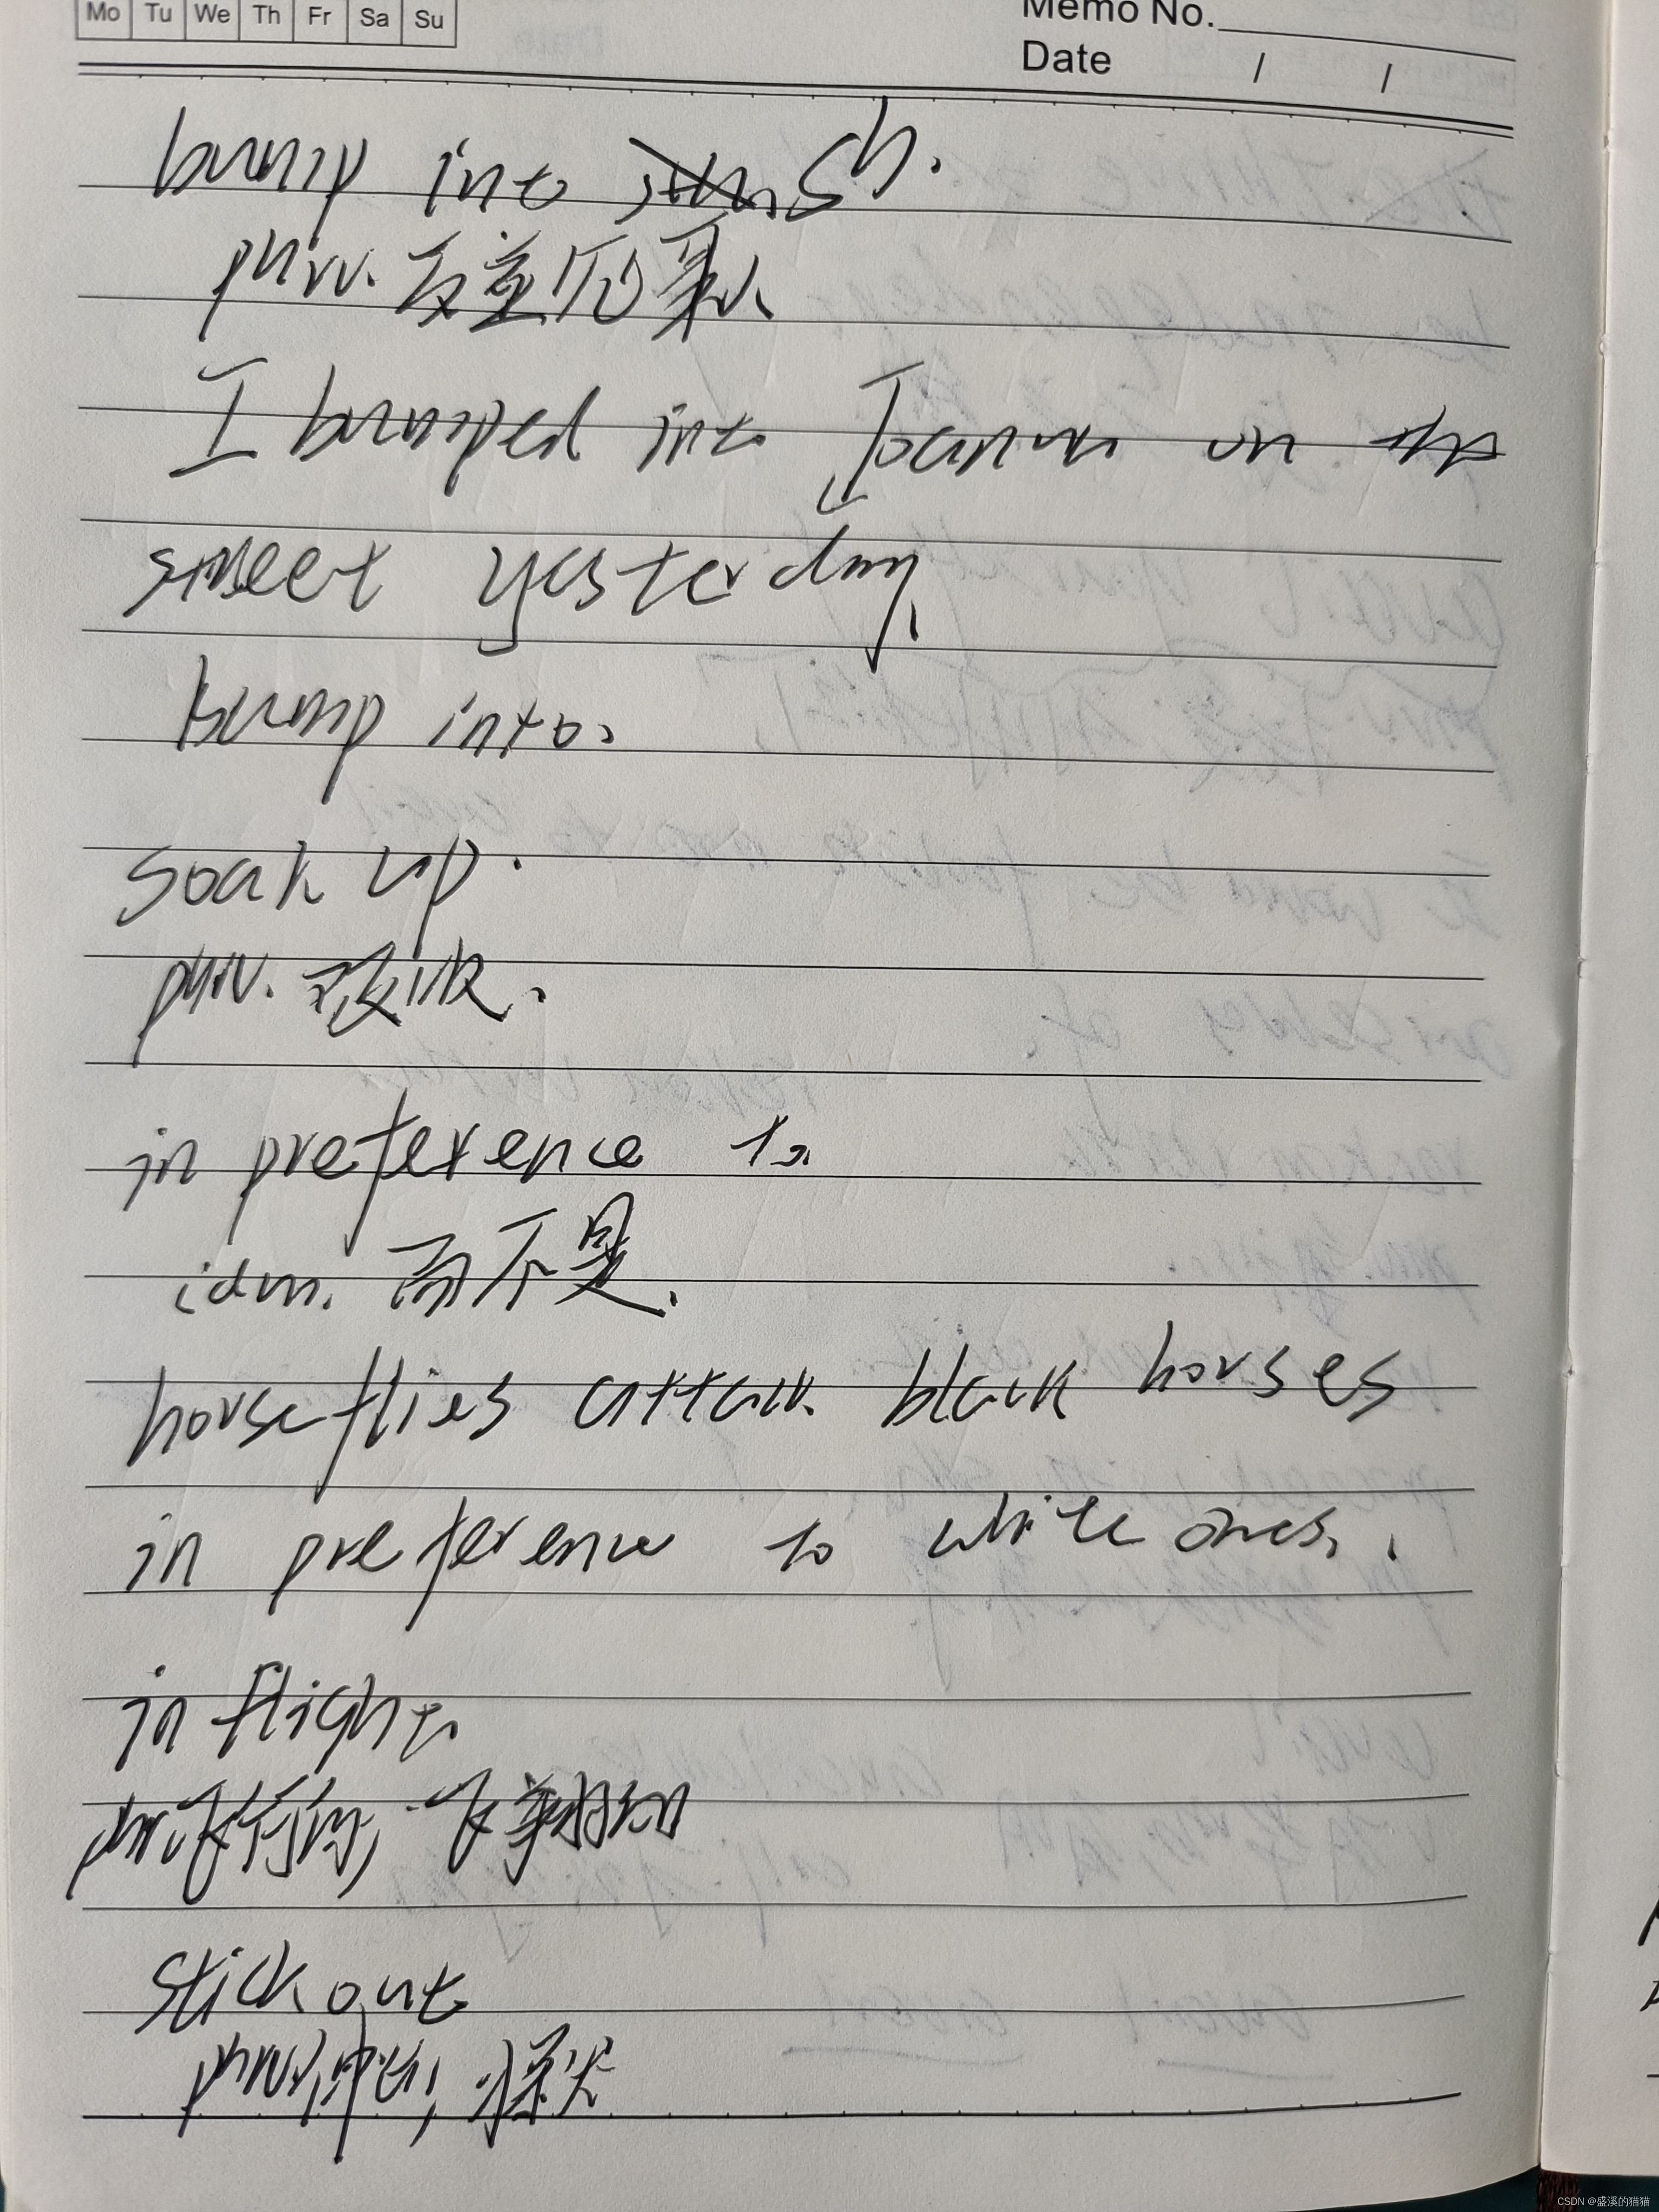 Mo Tu We Th Fr Sa Su
Memo No.
Date / /
bump into sb.
phrv.
I bumped into on the
street yesterday.
bump into.
soak up.
phrv. 吸收.
in preference to
idm. 而不是.
horseflies attack black horses
in preference to white ones.
in flight.
飞行的, 飞翔的
stick out
phrv.
CSDN @盛溪的猫猫